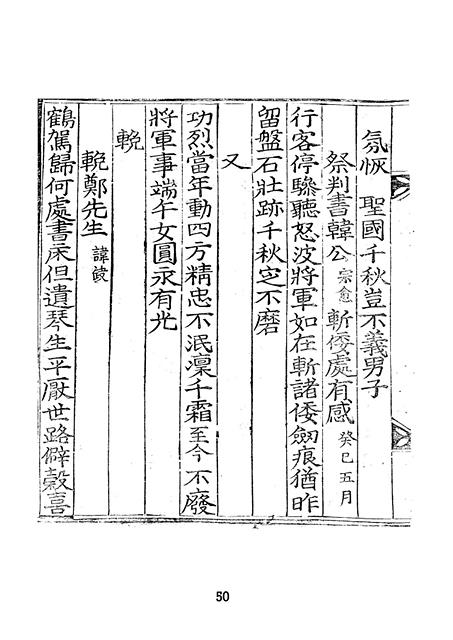 氛恢 聖國千秋豈不義男子
祭判書韓公 宗愈 斬倭處有感 癸巳五月
行客停驂聽怒波將軍如在斬諸倭劒痕猶昨
留盤石壯跡千秋㝎不磨
又
功烈當年動四方精忠不泯凜千霜至今不廢
將軍事端午女圓永有光
輓
輓鄭先生 諱
鶴駕歸何處書床但遺琴生平厭世路僻穀喜
50